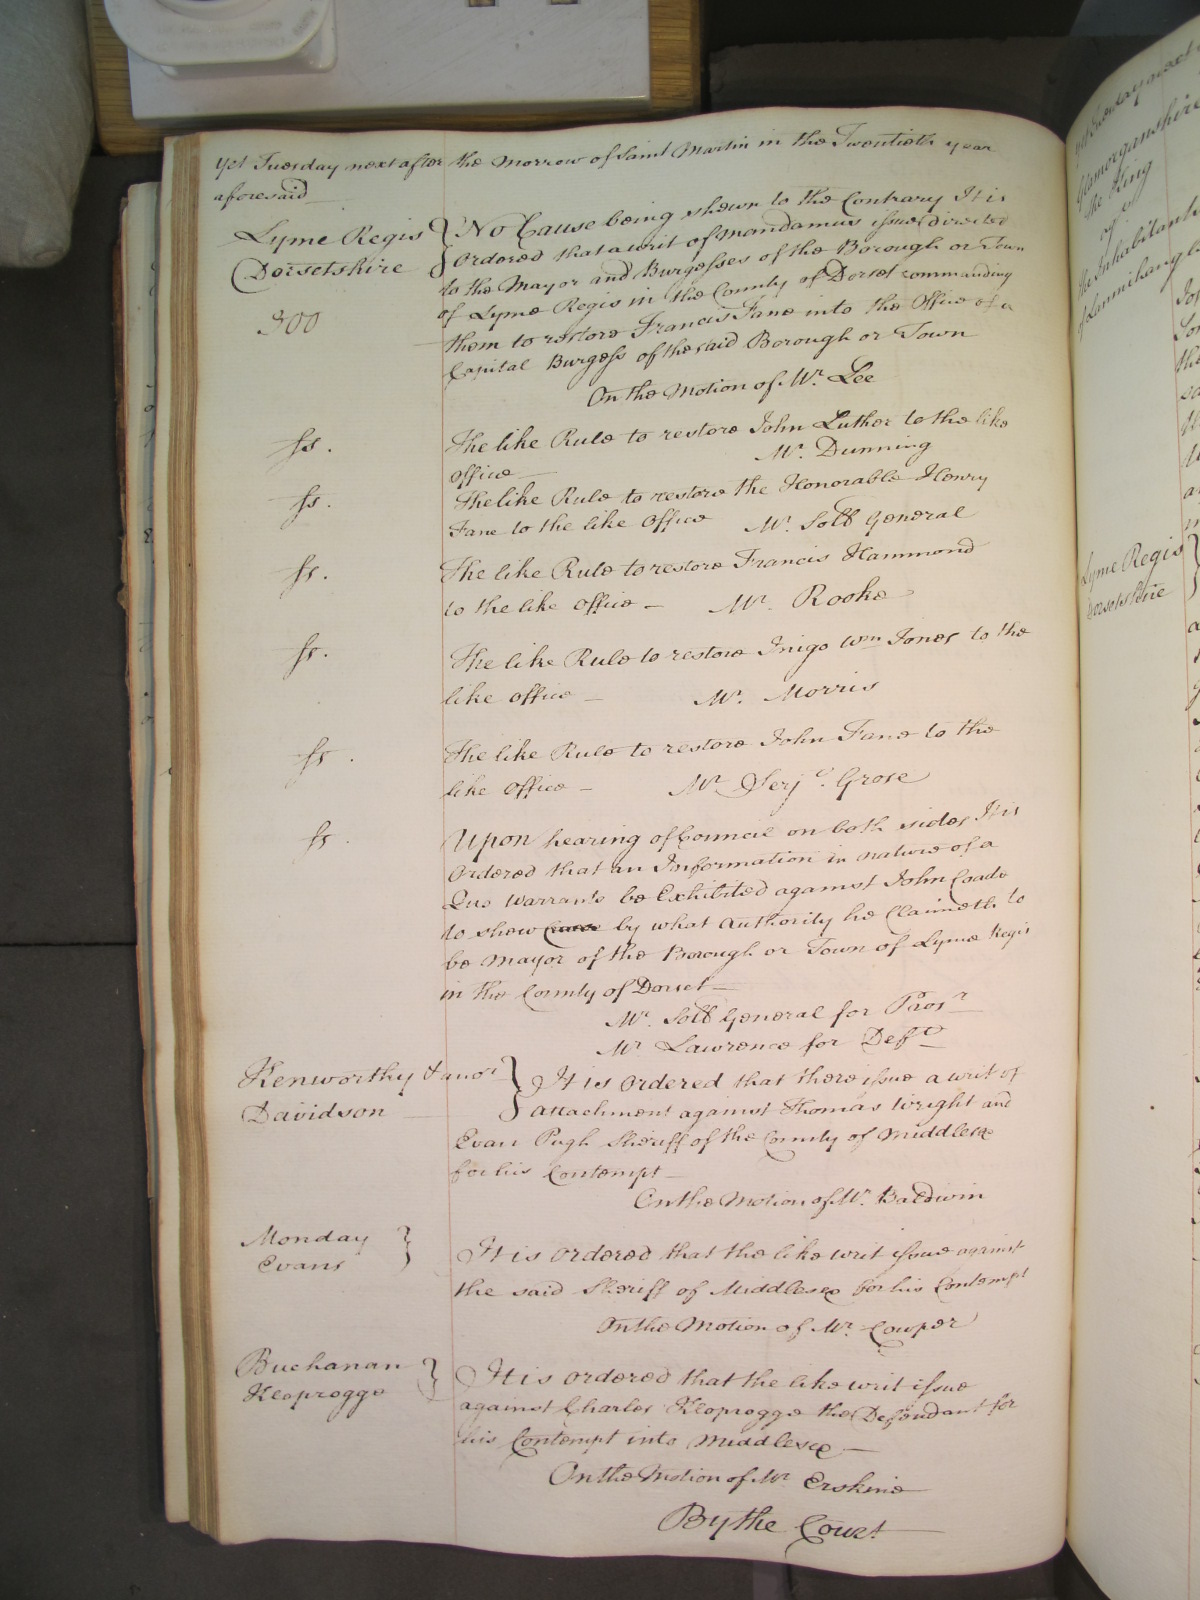 Yet Tuesday next after the Morrow of Saint Martin in the Twentieth year
aforesaid
Lyme Regis } No Cause being shewn to the Contrary It is
Dorsetshire } Ordered that a writ of Mandamus issue directed
to the Mayor and Burgesses of the Borough or Town
of Lyme Regis in the County of Dorset commanding
300
them to restore Francis Fane into the Office of a
Capital Burgess of the said Borough or Town
On the Motion of Mr. Lee
ss. The like Rule to restore John Luther to the like
office Mr. Dunning
ss. The like Rule to restore the Honorable Henry
Fane to the like Office Mr. Soll General
ss. The like Rule to restore Francis Hammond
to the like office — Mr. Rooke
ss. The like Rule to restore Inigo Wm Jones to the
like office — Mr. Morris
ss. The like Rule to restore John Fane to the
like office — Mr Serjt. Grose
ss. Upon hearing of Councel on both sides It is
Ordered that an Information in nature of a
Quo Warranto be Exhibited against John Coade
to shew Cause by what Authority he Claimeth to
be Mayor of the Borough or Town of Lyme Regis
in the County of Dorset —
Mr. Soll General for Prosr
Mr Lawrence for Deft
Kenworthy & anor } It is Ordered that there issue a writ of
Davidson } attachment against Thomas Wright and
Evan Pugh Sheriff of the County of Middlesex
for his Contempt —
On the Motion of Mr. Baldwin
Monday } It is ordered that the like writ issue against
Evans
the said Sheriff of Middlesex for his Contempt
On the Motion of Mr. Cowper
Buchanan } It is ordered that the like writ issue
Kloprogge } against Charles Kloprogge the Defendant for
his Contempt into Middlesex —
On the Motion of Mr Erskine
By the Court
Glamorganshire
The King
agt
the Inhabitants
of
Lyme Regis
Dorsetshire